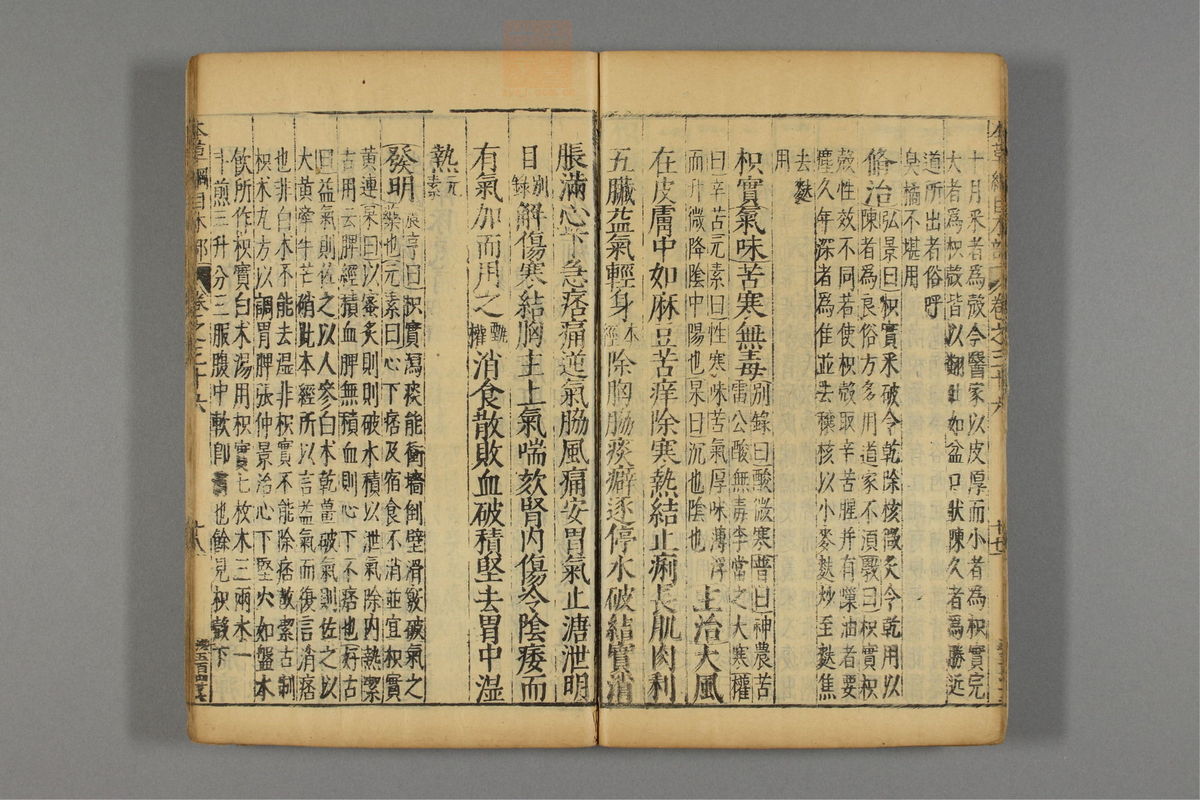 十月采者為殼今醫家以皮厚而小者為枳實完
大者為枳殼皆以翻肚如盆口狀陳久者為勝近
道所出者俗呼
臭橘不堪用
脩治
弘景曰枳實采破令乾除核微炙令乾用以
陳者為良俗方多用道家不須斆曰枳實枳
殼性效不同若使枳殼取辛苦腥并有隙油者要
塵久年深者為佳並去穰核以小麥麩炒至麩焦
去麩
用
枳實氣味苦寒無毒
別錄曰酸微寒普曰神農苦
雷公酸無毒李當之大寒權
曰辛苦元素曰性寒味苦氣厚味薄浮
而升微降陰中陽也杲曰沉也陰也
主治大風
在皮膚中如麻豆苦痒除寒熱結止痢長肌肉利
五臟益氣輕身
本
經
除胸脇痰癖逐停水破結實消
脹滿心下急痞痛逆氣脇風痛安胃氣止溏泄明
目
別
錄
解傷寒結胸主上氣喘欬腎內傷冷陰痿而
有氣加而用之
甄
權
消食散敗血破積堅去胃中湿
熱
元
素
發明
震亨曰枳實瀉痰能衝墻倒壁滑竅破氣之
藥也元素曰心下痞及宿食不消並宜枳實
黃連杲曰以蜜炙用則破水積以泄氣除內熱潔
古用去脾經積血脾無積血則心下不痞也好古
曰益氣則佐之以人參白朮乾薑破氣則佐之以
大黃牽牛芒硝此本經所以言益氣而復言消痞
也非白朮不能去湿非枳實不能除痞故潔古制
枳朮丸方以調胃脾張仲景治心下堅大如盤水
飲所作枳實白朮湯用枳實七枚朮三兩水一
斗煎三升分三服腹中軟即 也餘見枳殼下
本草綱目木部
卷之三十六
廿七
本草綱目木部
卷之三十六
廿八